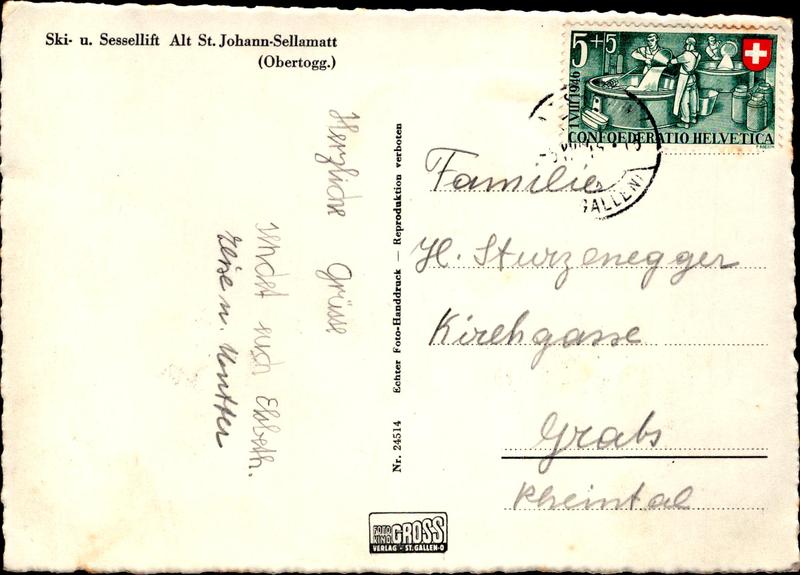 Ski- u. Sessellift Alt St. Johann-Sellamatt
(Obertogg.)
Herzliche Grüsse
sendet euch Elsbeth.
u. Mutter
Nr. 24514 Echter Foto-Handdruck — Reproduktion verboten
5+5
1 VIII 1946
CONFOEDERATIO HELVETICA
GALLEN)
Familie
H. Sturzenegger
Kirchgasse
Grabs
Rheintal
FOTO KINO GROSS
VERLAG - ST. GALLEN-O